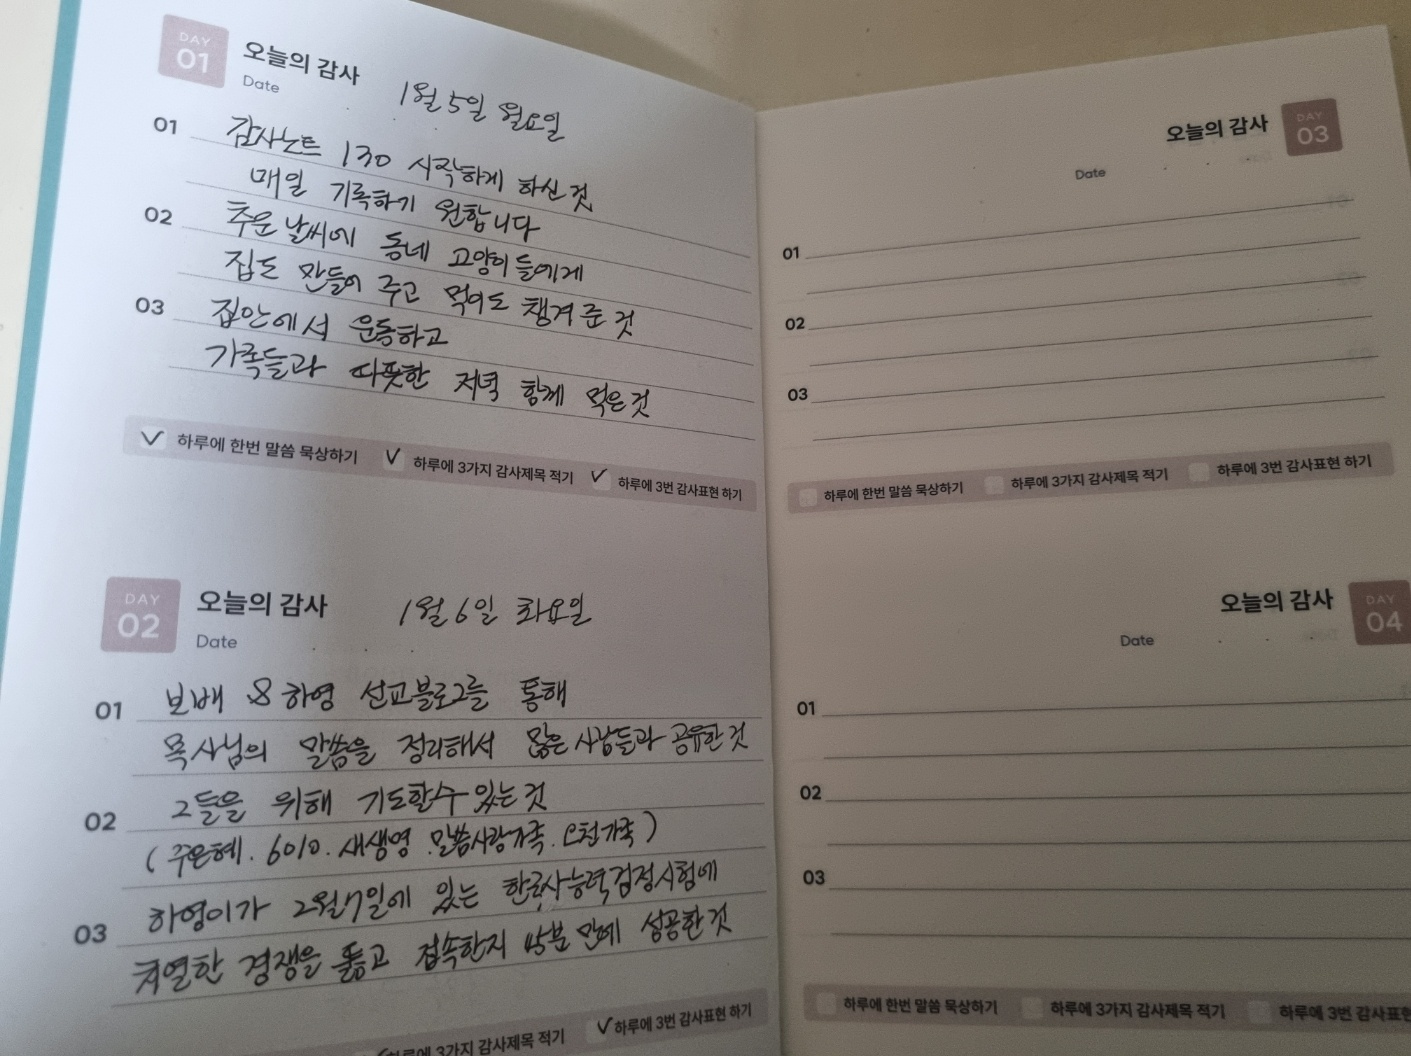 DAY 01 오늘의 감사
Date 1월 5일 월요일
01 감사노트 130 시작하게 하신 것
매일 기록하기 원합니다
02 추운 날씨에 동네 고양이들에게
집도 만들어 주고 먹이도 챙겨 준 것
03 집안에서 운동하고
가족들과 따뜻한 저녁 함께 먹은 것
하루에 한번 말씀 묵상하기 하루에 3가지 감사제목 적기 하루에 3번 감사표현 하기
DAY 02 오늘의 감사
Date 1월 6일 화요일
01 보배 & 하영 선교블로그를 통해
목사님의 말씀을 정리해서 많은 사람들과 공유한 것
02 그들을 위해 기도할 수 있는 것
(주은혜. 6010. 새생명. 말씀사랑가족.
03 하영이가 2월 7일에 있는 한국사능력검정시험에
치열한 경쟁을 뚫고 접속한지 45분 만에 성공한 것
하루에 3가지 감사제목 적기 하루에 3번 감사표현 하기
오늘의 감사 DAY 03
Date
01
02
03
하루에 한번 말씀 묵상하기 하루에 3가지 감사제목 적기 하루에 3번 감사표현 하기
오늘의 감사 DAY 04
Date
01
02
03
하루에 한번 말씀 묵상하기 하루에 3가지 감사제목 적기 하루에 3번 감사표현